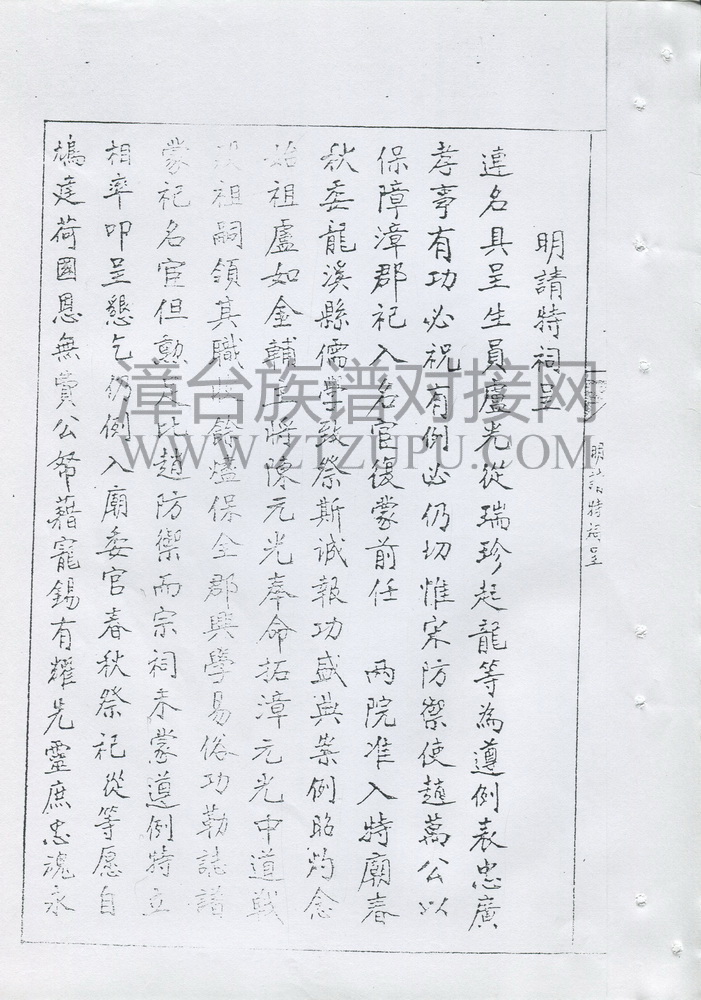 明請特祠呈
明請特祠呈
連名具呈生員盧光從瑞珍起龍等為遵例表忠廣
孝事有功必祝有例必仍切惟宋防禦使趙萬公以
保障漳郡祀入名宦復蒙前任 兩院准入特廟春
秋委龍溪縣儒學致祭斯誠報功盛典案例昭灼念
始祖盧如金輔 將陳元光奉命拓漳元光中道戰
歿祖嗣領其職 餘燼保全郡興學易俗功勒誌譜
蒙祀名宦但勲 比趙防禦而宗祠未蒙遵例特立
相率叩呈懇乞仍例入廟委官春秋祭祀從等愿自
鳩建荷國恩無費公帑藉寵錫有耀先靈庶忠魂永
漳台族谱对接网
WWW.ZTZUPU.COM